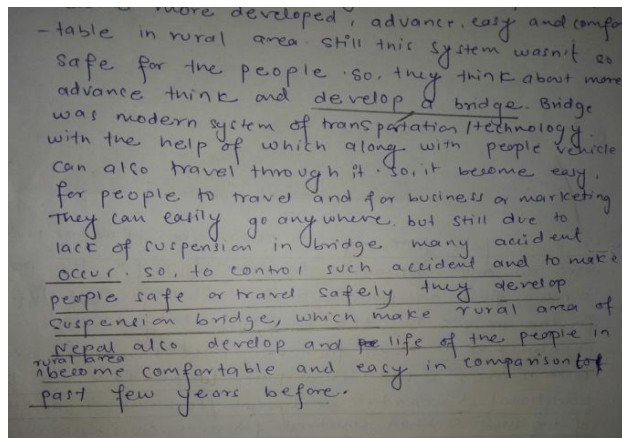 more developed, advance, easy and comfor
-table in rural area. still this system wasn't so
safe for the people. so, they think about more
advance think and develop a bridge. Bridge
was modern system of transpartation /technology.
with the help of which along with people vehicle
can also travel through it. so, it become easy.
for people to travel and for business or marketing
They can easily go anywhere. but still due to
lack of suspension in bridge many accident
occur. so, to control such accident and to make
people safe or travel safely they develop
suspension bridge, which make rural area of
Nepal also develop and life of the people in
rural area
become comfortable and easy in comparison to
past few years before.